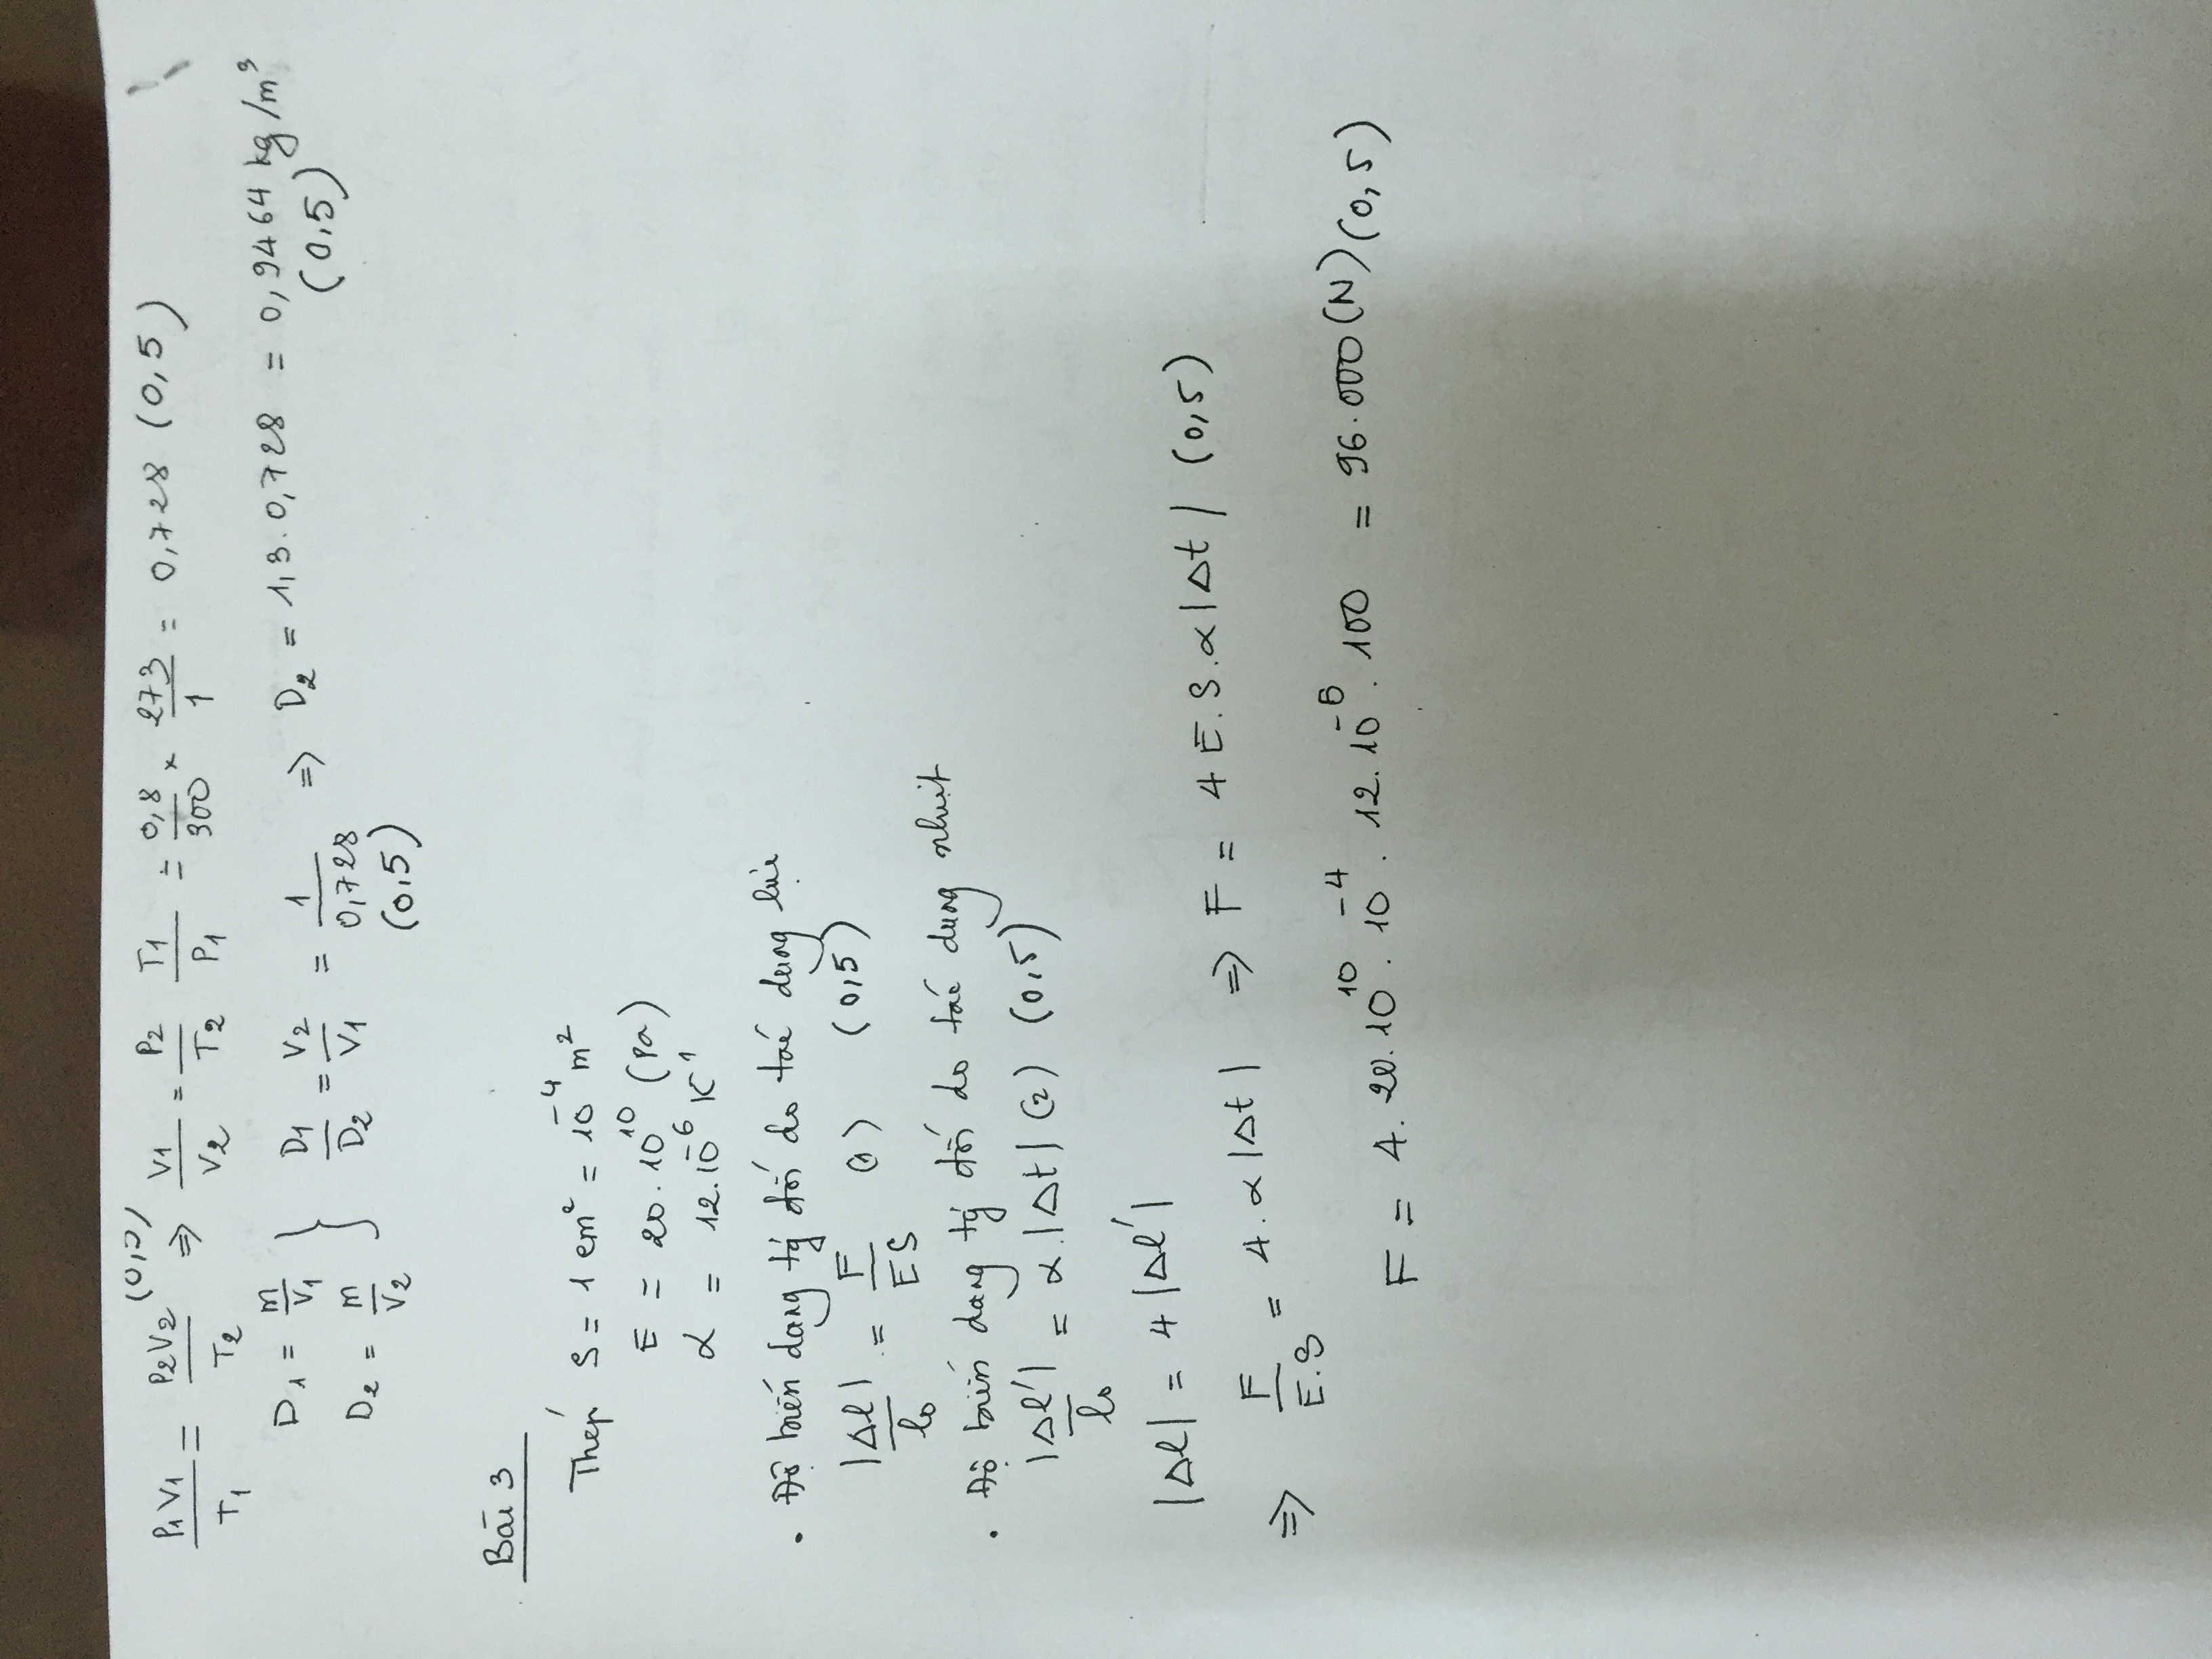 P₁V₁/T₁ = P₂V₂/T₂ ⇒ V₁/V₂ = P₂/T₂ T₁/P₁ = 0,8/300 × 273/1 = 0,728 (0,5)
D₁ = m/V₁ } D₁/D₂ = V₂/V₁ = 1/0,728 ⇒ D₂ = 1,3.0,728 = 0,9464 kg/m³
D₂ = m/V₂ (0,5) (0,5)
Bài 3
Thép S = 1 cm² = 10⁻⁴ m²
E = 20.10¹⁰ (Pa)
α = 12.10⁻⁶ K⁻¹
• Độ biến dạng tỷ đối do tác dụng lực
|Δl|/l₀ = F/ES (1) (0,5)
• Độ biến dạng tỷ đối do tác dụng nhiệt
|Δl'|/l₀ = α.|Δt| (2) (0,5)
|Δl| = 4|Δl'|
⇒ F/E.S = 4.α|Δt| ⇒ F = 4E.S.α|Δt| (0,5)
F = 4.20.10¹⁰.10⁻⁴.12.10⁻⁵.100 = 96.000(N)(0,5)